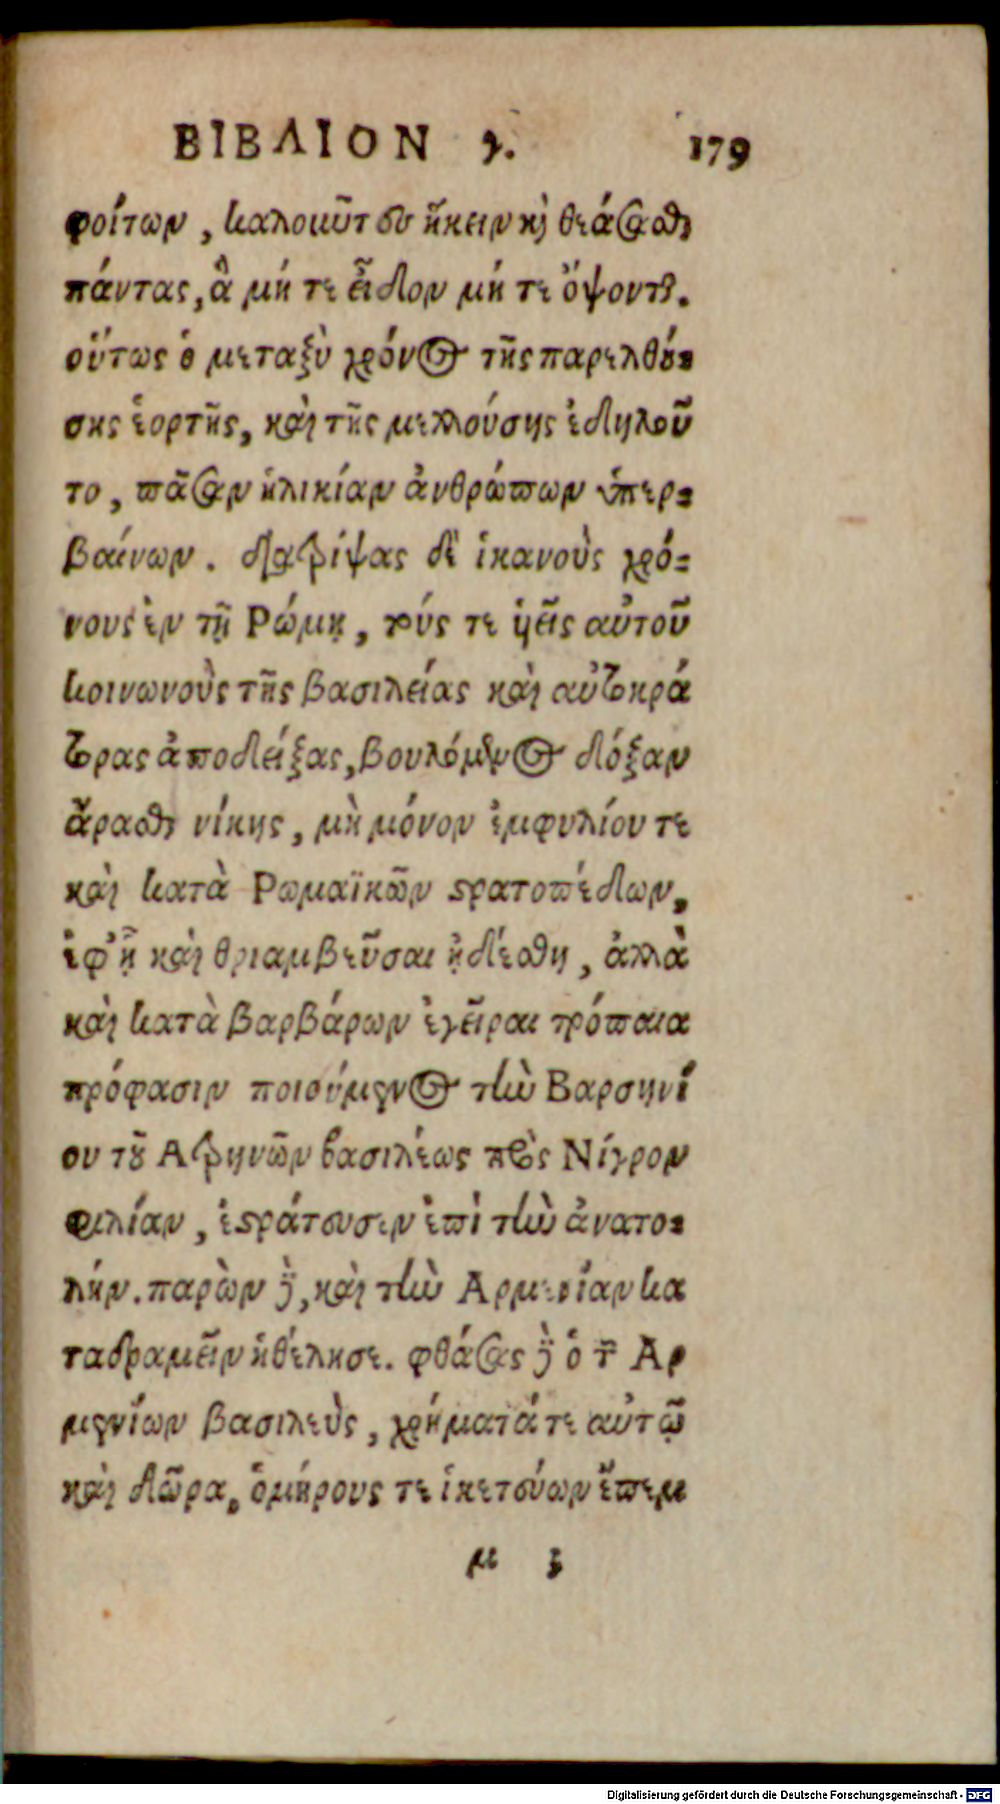 ΒΙΒΛΙΟΝ γ. 179
φοίτων, καλοῦντες ἥκειν κὶ θεάσαϑ
πάντας, ἃ μή τε εἶδον μή τε ὄψοντ.
οὕτως ὁ μεταξὺ χρόνος τῆς παρελθού-
σης ἑορτῆς, καὶ τῆς μελλούσης ἐδηλοῦ
το, πᾶσαν ἡλικίαν ἀνθρώπων ὑπερ-
βαίνων. διατρίψας δὲ ἱκανοὺς χρό-
νους ἐν τῇ Ρώμῃ, τούς τε υἱεῖς αὐτοῦ
κοινωνοὺς τῆς βασιλείας καὶ αὐτοκρά
τορας ἀποδείξας, βουλόμενος δόξαν
ἄρασθαι νίκης, μὴ μόνον ἐμφυλίου τε
καὶ κατὰ Ρωμαϊκῶν στρατοπέδων,
ἐφ᾽ ᾗ καὶ θριαμβεῦσαι ᾐδέσθη, ἀλλὰ
καὶ κατὰ βαρβάρων ἐγεῖραι τρόπαια
πρόφασιν ποιούμενος τὴν Βαρσηνί
ου τοῦ Ατρηνῶν βασιλέως πρὸς Νίγρον
φιλίαν, ἐστράτευσεν ἐπὶ τὴν ἀνατο-
λήν. παρὼν δὲ, καὶ τὴν Αρμενίαν κα
ταδραμεῖν ἠθέλησε. φθάσας δὲ ὁ τῶν Αρ
μενίων βασιλεὺς, χρήματά τε αὐτῷ
καὶ δῶρα, ὁμήρους τε ἱκετεύων ἔπεμ
μ 3
Digitalisierung gefördert durch die Deutsche Forschungsgemeinschaft - DFG